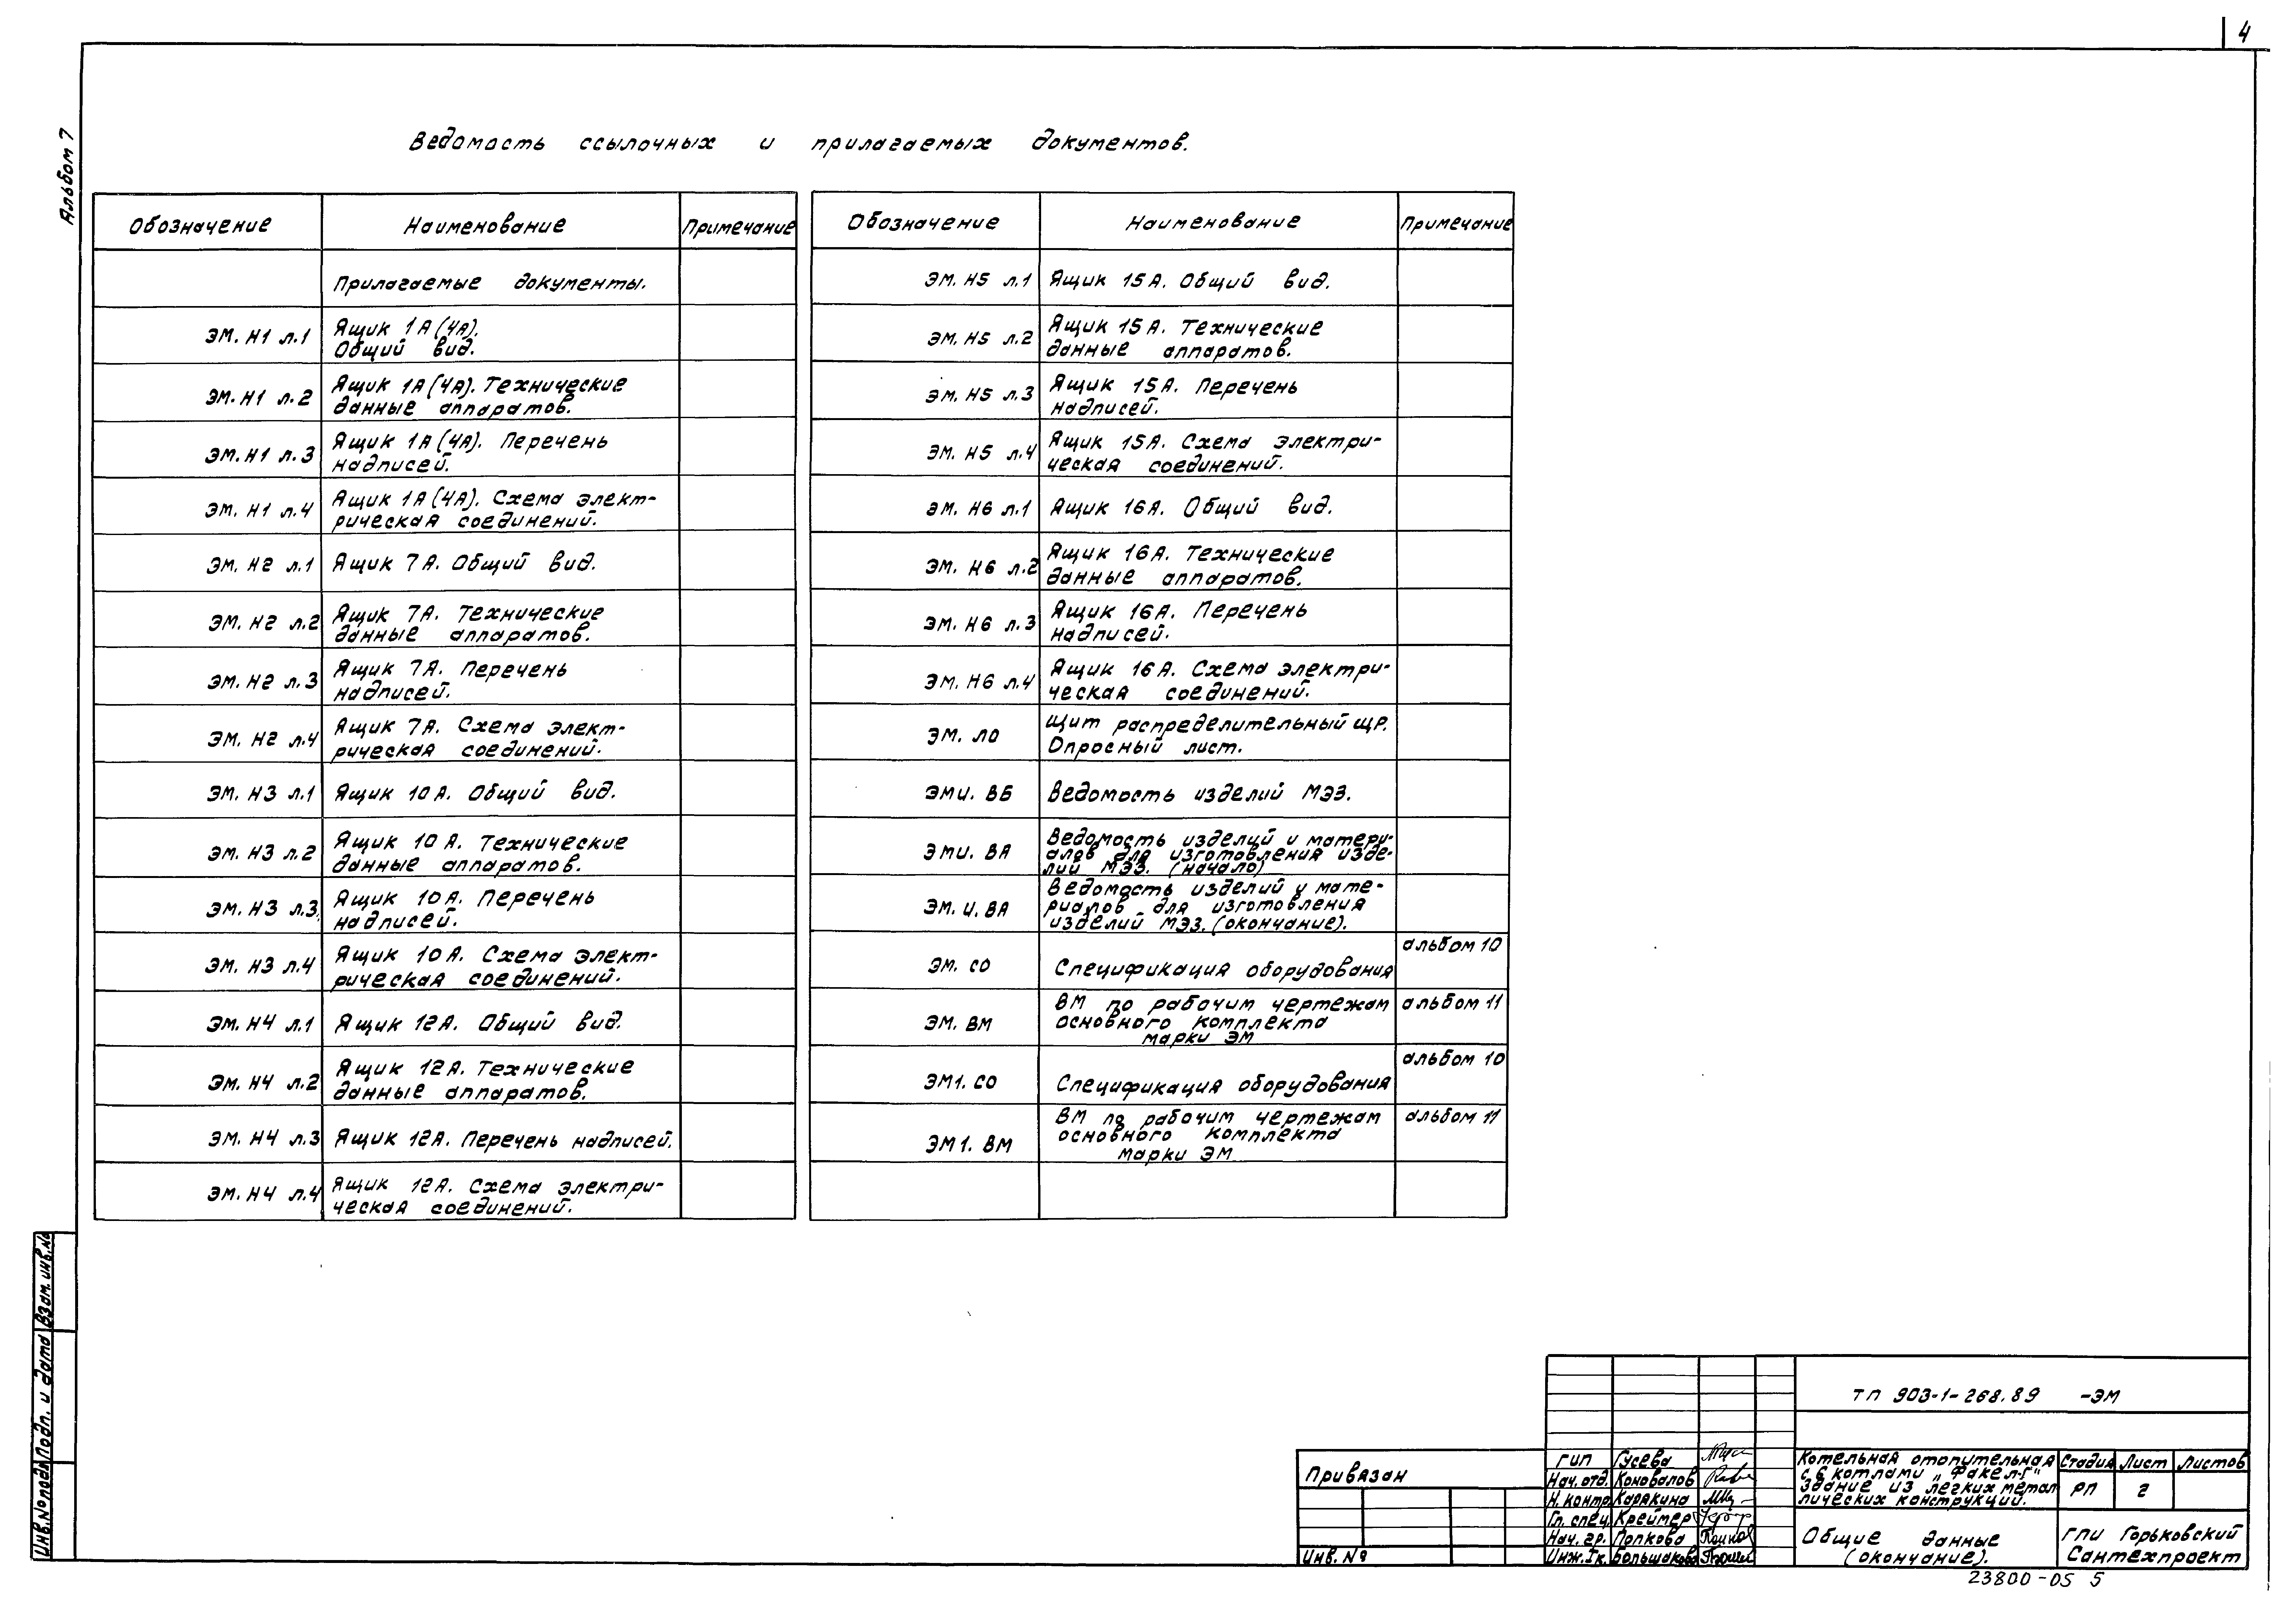 4
Альбом 7
Ведомость ссылочных и прилагаемых документов.
Обозначение Наименование Примечание
Прилагаемые документы.
ЭМ. Н1 л.1 Ящик 1А (4А).
Общий вид.
ЭМ. Н1 л.2 Ящик 1А (4А). Технические
данные аппаратов.
ЭМ. Н1 л.3 Ящик 1А (4А). Перечень
надписей.
ЭМ. Н1 л.4 Ящик 1А (4А). Схема элект-
рическая соединений.
ЭМ. Н2 л.1 Ящик 7А. Общий вид.
ЭМ. Н2 л.2 Ящик 7А. Технические
данные аппаратов.
ЭМ. Н2 л.3 Ящик 7А. Перечень
надписей.
ЭМ. Н2 л.4 Ящик 7А. Схема элект-
рическая соединений.
ЭМ. Н3 л.1 Ящик 10А. Общий вид.
ЭМ. Н3 л.2 Ящик 10А. Технические
данные аппаратов.
ЭМ. Н3 л.3 Ящик 10А. Перечень
надписей.
ЭМ. Н3 л.4 Ящик 10А. Схема элект-
рическая соединений.
ЭМ. Н4 л.1 Ящик 12А. Общий вид.
ЭМ. Н4 л.2 Ящик 12А. Технические
данные аппаратов.
ЭМ. Н4 л.3 Ящик 12А. Перечень надписей.
ЭМ. Н4 л.4 Ящик 12А. Схема электри-
ческая соединений.
Обозначение Наименование Примечание
ЭМ. Н5 л.1 Ящик 15А. Общий вид.
ЭМ. Н5 л.2 Ящик 15А. Технические
данные аппаратов.
ЭМ. Н5 л.3 Ящик 15А. Перечень
надписей.
ЭМ. Н5 л.4 Ящик 15А. Схема электри-
ческая соединений.
ЭМ. Н6 л.1 Ящик 16А. Общий вид.
ЭМ. Н6 л.2 Ящик 16А. Технические
данные аппаратов.
ЭМ. Н6 л.3 Ящик 16А. Перечень
надписей.
ЭМ. Н6 л.4 Ящик 16А. Схема электри-
ческая соединений.
ЭМ. ЛО Щит распределительный ЩР.
Опросный лист.
ЭМИ. ВБ Ведомость изделий МЭЗ.
ЭМИ. ВА Ведомость изделий и матери-
алов для изготовления изде-
лий МЭЗ. (начало)
ЭМ. И. ВА Ведомость изделий и мате-
риалов для изготовления
изделий МЭЗ. (окончание).
ЭМ. СО Спецификация оборудования альбом 10
ЭМ. ВМ ВМ по рабочим чертежам альбом 11
основного комплекта
марки ЭМ
ЭМ1. СО Спецификация оборудования альбом 10
ЭМ1. ВМ ВМ по рабочим чертежам альбом 11
основного комплекта
марки ЭМ
Инв.№подл Подп. и дата Взам.инв.№
Привязан
Инв. №
ГИП Гусева
Нач. отд. Коновалов
Н. контр. Карякина
Гл. спец. Креймер
Нач. гр. Попкова
Инж. Iк. Большакова
ТП 903-1-268.89 -ЭМ
Котельная отопительная
с 6 котлами „Факел-Г"
Здание из легких метал
лических конструкций.
Стадия Лист Листов
РП 2
Общие данные
(окончание).
ГПИ Горьковский
Сантехпроект
23800-05 5